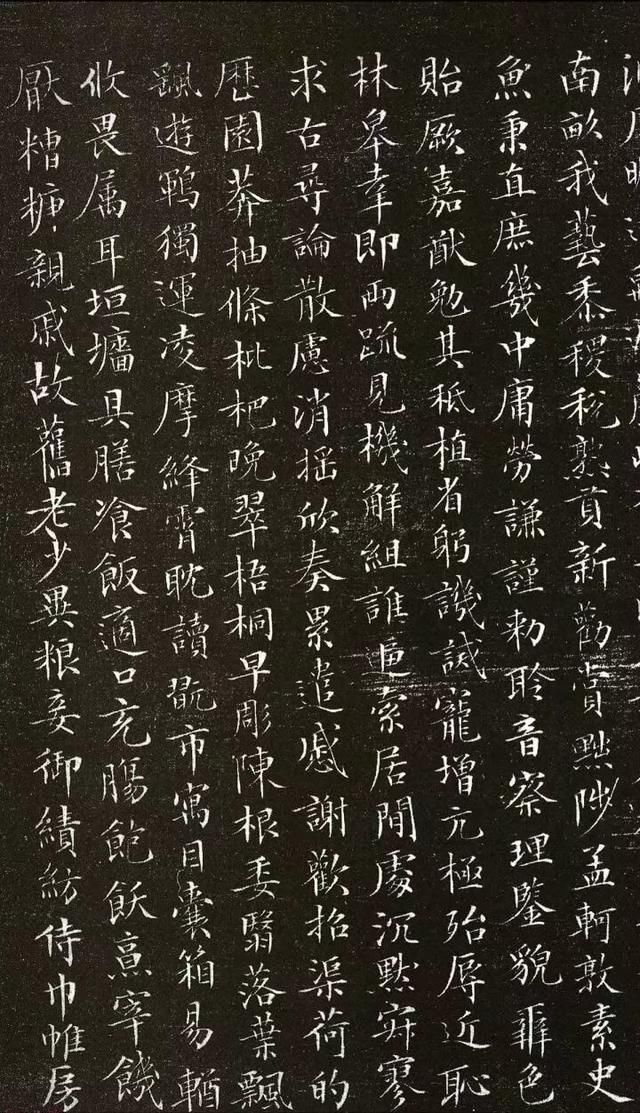 南畝我藝黍稷稅熟貢新勸賞黜陟孟軻敦素史
魚秉直庶幾中庸勞謙謹勅聆音察理鑒貌辨色
貽厥嘉猷勉其祗植省躬譏誡寵增亢極殆辱近恥
林皋幸即兩疏見機解組誰逼索居閒處沉默寂寥
求古尋論散慮消搖欣奏累遣慼謝歡招渠荷的
歷園莽抽條枇杷晚翠梧桐早彫陳根委翳落葉飄
飖遊鵾獨運凌摩絳霄耽讀翫市寓目囊箱易輶
攸畏属耳垣墻具膳飡飯適口充腸飽飫烹宰饑
厭糟糠親戚故舊老少異粮妾御績紡侍巾帷房